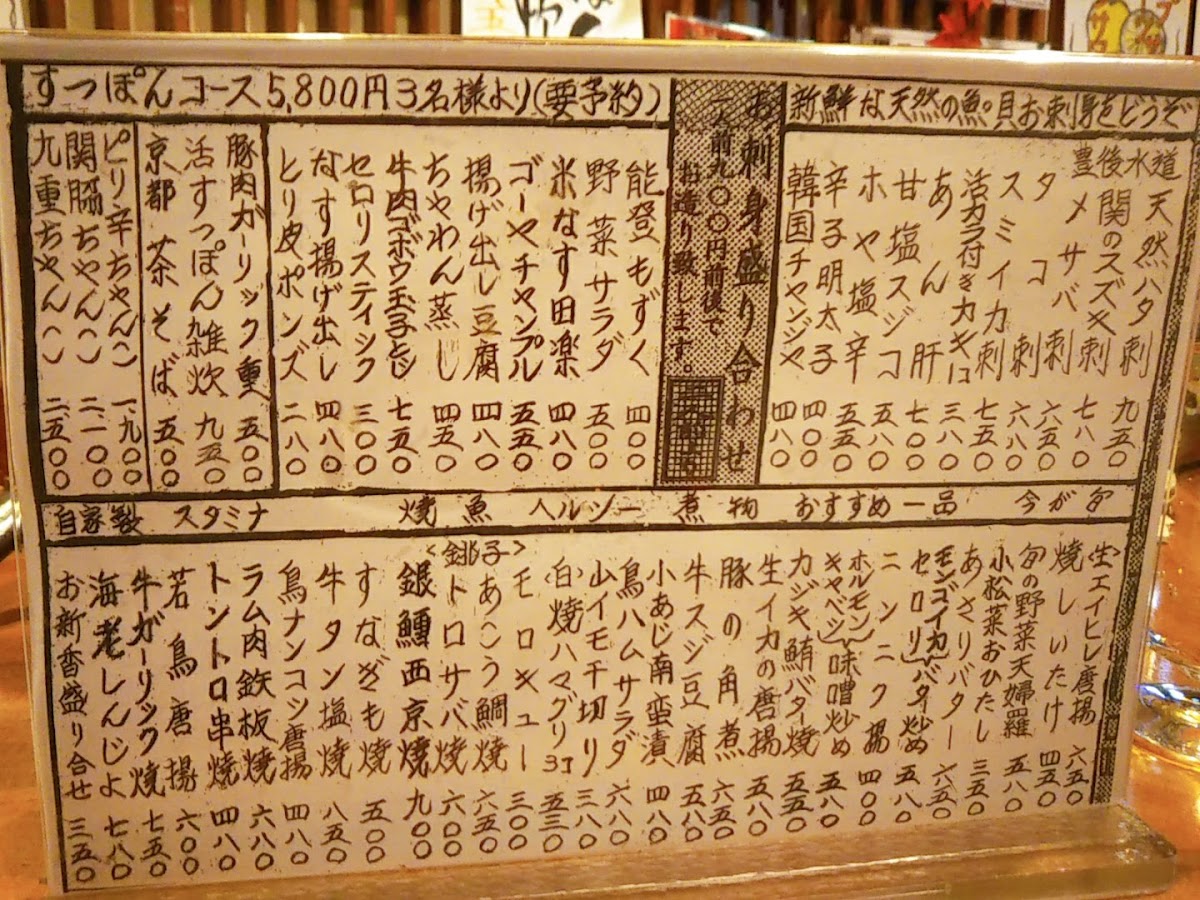 すっぽんコース5,800円3名様より(要予約)
新鮮な天然の魚。貝お刺身をどうぞ
豊後水道
天然ハタ刺 九五〇
関のスズキ刺 七八〇
〆サバ刺 六五〇
タコ刺 六八〇
スミイカ刺 七五〇
活カラ付きカキ 三八〇
あん肝 七〇〇
甘塩スジコ 五八〇
ホヤ塩辛 五五〇
辛子明太子 四〇〇
韓国チャンジャ 四八〇
お刺身盛り合わせ
一人前九〇〇円前後で
お造り致します。
能登もずく 四〇〇
野菜サラダ 五〇〇
米なす田楽 四八〇
ゴーヤチャンプル 五五〇
揚げ出し豆腐 四八〇
ちゃわん蒸し 四五〇
牛肉ゴボウ玉子とじ 七五〇
セロリスティック 三〇〇
なす揚げ出し 四八〇
とり皮ポンズ 二八〇
豚肉ガーリック重 五〇〇
活すっぽん雑炊 九五〇
京都 茶そば 五〇〇
ピリ辛ちゃんこ 一、九〇〇
関脇ちゃんこ 二、一〇〇
九重ちゃんこ 二、五〇〇
自家製 スタミナ 焼魚 ヘルシー 煮物 おすすめ一品 今が旬
生エイヒレ唐揚 六五〇
焼しいたけ 四五〇
旬の野菜天婦羅 五八〇
小松菜おひたし 三五〇
あさりバター 六五〇
モンゴイカ セロリ バター炒め 五八〇
ニンニク揚 四〇〇
ホルモン キャベツ 味噌炒め 五八〇
カジキ鮪バター焼 五五〇
生イカの唐揚 五八〇
豚の角煮 七〇〇
牛スジ豆腐 五八〇
小あじ南蛮漬 四八〇
鳥ハムサラダ 六八〇
山イモ千切り 三八〇
白焼ハマグリ3コ 五三〇
モロキュー 三〇〇
<銚子>
あこう鯛焼 六五〇
トロサバ焼 六〇〇
銀鱈西京焼 九〇〇
すなぎも焼 五〇〇
牛タン塩焼 八五〇
鳥ナンコツ唐揚 四八〇
ラム肉鉄板焼 六八〇
トントロ串焼 四八〇
若鳥唐揚 六〇〇
牛ガーリック焼 七五〇
海老しんじょ 七八〇
お新香盛り合せ 三五〇